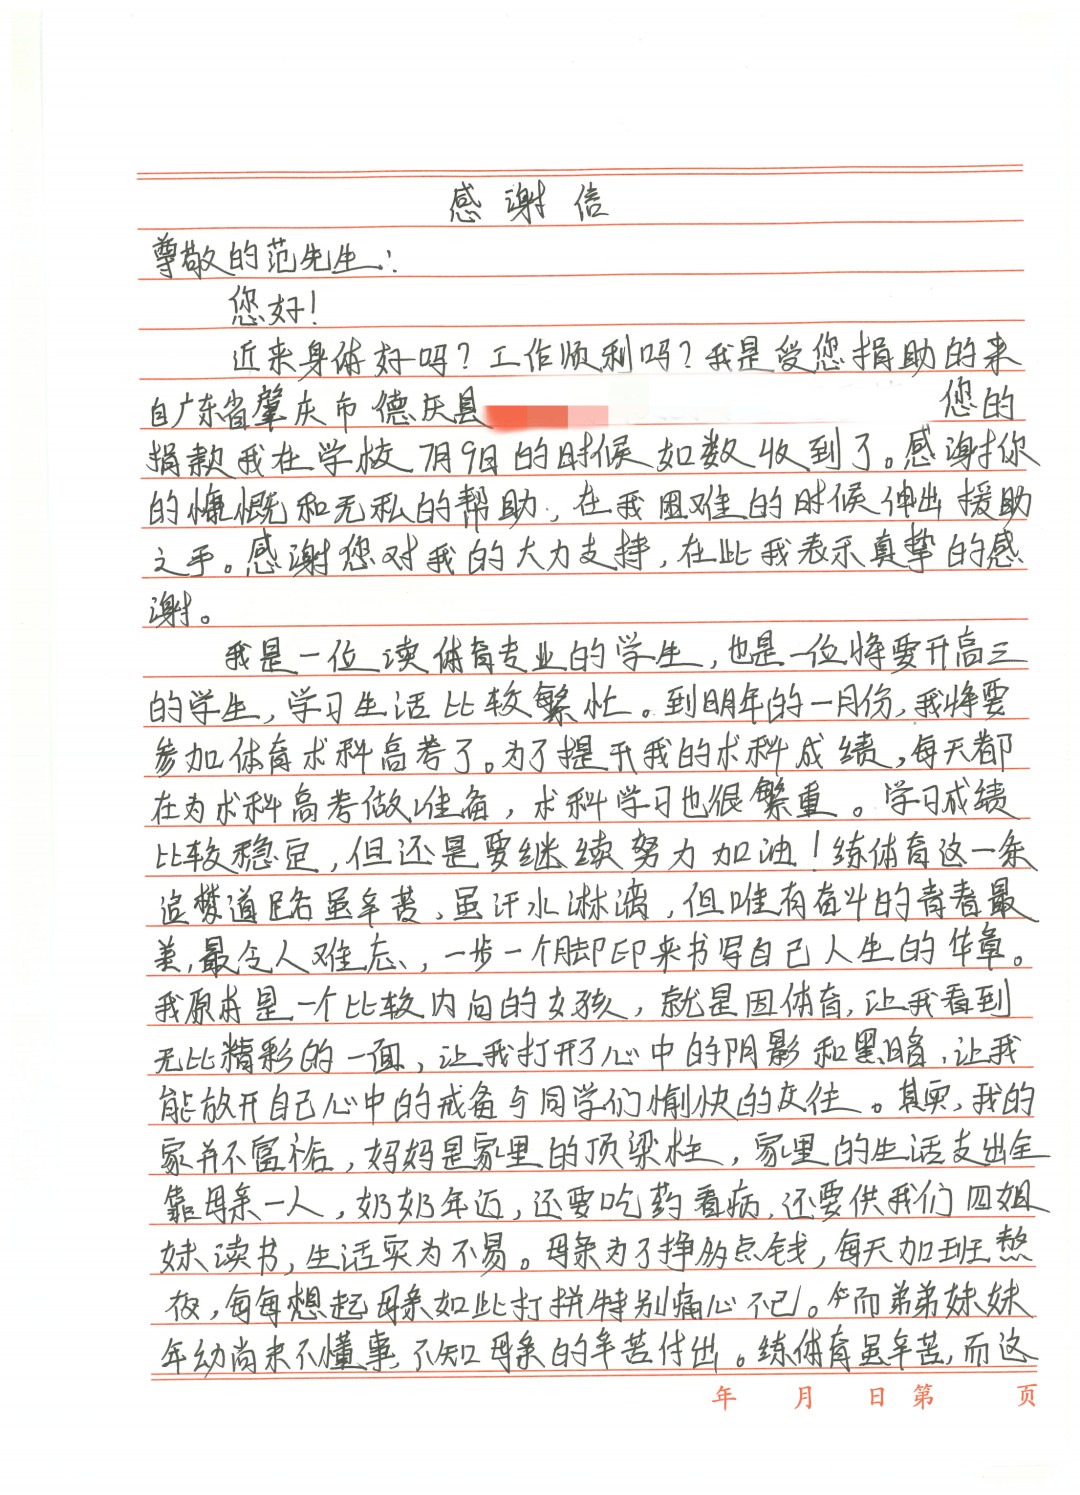 感谢信
尊敬的范先生：
您好！
近来身体好吗？工作顺利吗？我是受您捐助的来
自广东省肇庆市德庆县 您的
捐款我在学校7月9日的时候如数收到了。感谢你
的慷慨和无私的帮助，在我困难的时候伸出援助
之手。感谢您对我的大力支持，在此我表示真挚的感
谢。
我是一位读体育专业的学生，也是一位将要升高三
的学生，学习生活比较繁忙。到明年的一月份，我将要
参加体育术科高考了。为了提升我的术科成绩，每天都
在为术科高考做准备，术科学习也很繁重。学习成绩
比较稳定，但还是要继续努力加油！练体育这一条
追梦道路虽辛苦，虽汗水淋漓，但唯有奋斗的青春最
美，最令人难忘，一步一个脚印来书写自己人生的华章。
我原本是一个比较内向的女孩，就是因体育，让我看到
无比精彩的一面，让我打开了心中的阴影和黑暗，让我
能放开自己心中的戒备与同学们愉快的交往。其实，我的
家并不富裕，妈妈是家里的顶梁柱，家里的生活支出全
靠母亲一人，奶奶年迈，还要吃药看病，还要供我们四姐
妹读书，生活实为不易。母亲为了挣多点钱，每天加班熬
夜，每每想起母亲如此打拼特别痛心不已。而弟弟妹妹
年幼尚未不懂事，不知母亲的辛苦付出。练体育虽辛苦，而这
年 月 日 第 页